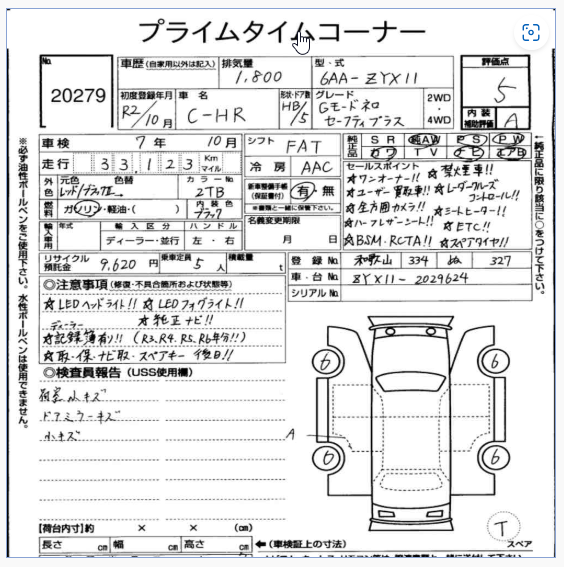 プライムタイムコーナー
No. 20279
車歴(自家用以外は記入) 排気量 1,800 型・式 6AA-ZYX11 評価点 5
初度登録年月 R2/10月 車名 C-HR 形状・ドア数 HB/5 グレード Gモードネロ セーフティプラス 2WD 4WD 内装補助評価 A
車検 7年 10月 シフト FAT 純正品 SR 純AW PS PW
カワ TV ナビ エアB
走行 33,123 Km マイル 冷房 AAC
外色 元色 レッド/ブラックII 色替 カラーNo. 2TB 新車整備手帳(保証書付) 有・無
※書類と一緒に保管下さい。
燃料 ガソリン・軽油・( ) 内装色 ブラック 名義変更期限 月 日
輸入車用 年式 輸入区分 ディーラー・並行 ハンドル 左・右
セールスポイント
☆ワンオーナー!! ☆禁煙車!!
☆ユーザー買取車!! ☆レーダークルーズコントロール!!
☆全方囲カメラ!! ☆シートヒーター!!
☆ハーフレザーシート!! ☆ETC!!
☆BSM・RCTA!! ☆スペアタイヤ!!
リサイクル預託金 9,620円 乗車定員 5人 積載量 t
登録No 和歌山 334 ぬ 327
車・台No ZYX11-2029624
シリアルNo
◎注意事項(修復・不具合箇所および状態等)
☆LEDヘッドライト!! ☆LEDフォグライト!!
☆純正ナビ!!
ディーラー
☆記録簿有り!! (R3.R4.R5.R6年分!!)
☆取・保・ナビ取・スペアキー 後日!!
◎検査員報告(USS使用欄)
荷室小キズ
ドアミラーキズ
小キズ
A
6
6
6
6
T
スペア
【荷台内寸】約 × × (cm)
長さ cm 幅 cm 高さ cm ←(車検証上の寸法)
※必ず油性ボールペンをご使用下さい。水性ボールペンは使用できません。
←純正品に限り該当に○をつけて下さい。